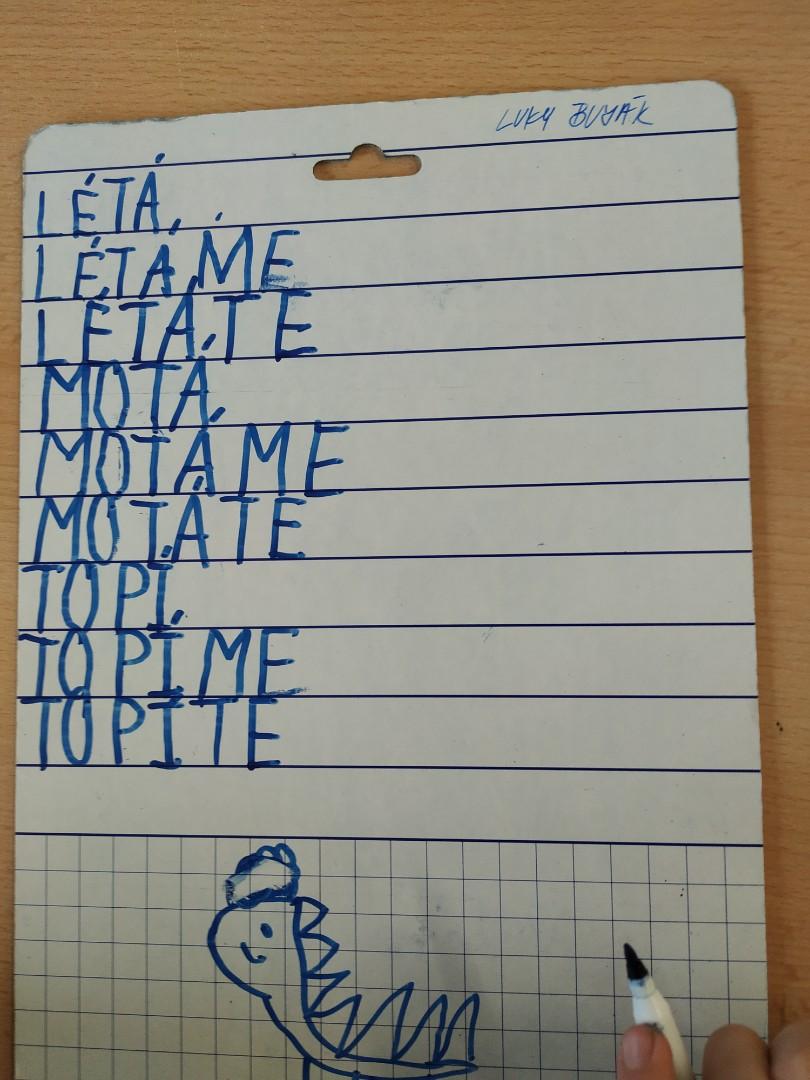 LUKY BUJÁK
LÉTÁ,
LÉTÁME
LÉTÁTE
MOTÁ,
MOTÁME
MOTÁTE
TOPÍ,
TOPÍME
TOPÍTE